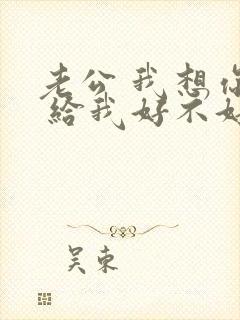 老公我想你
給我好不好
吴东